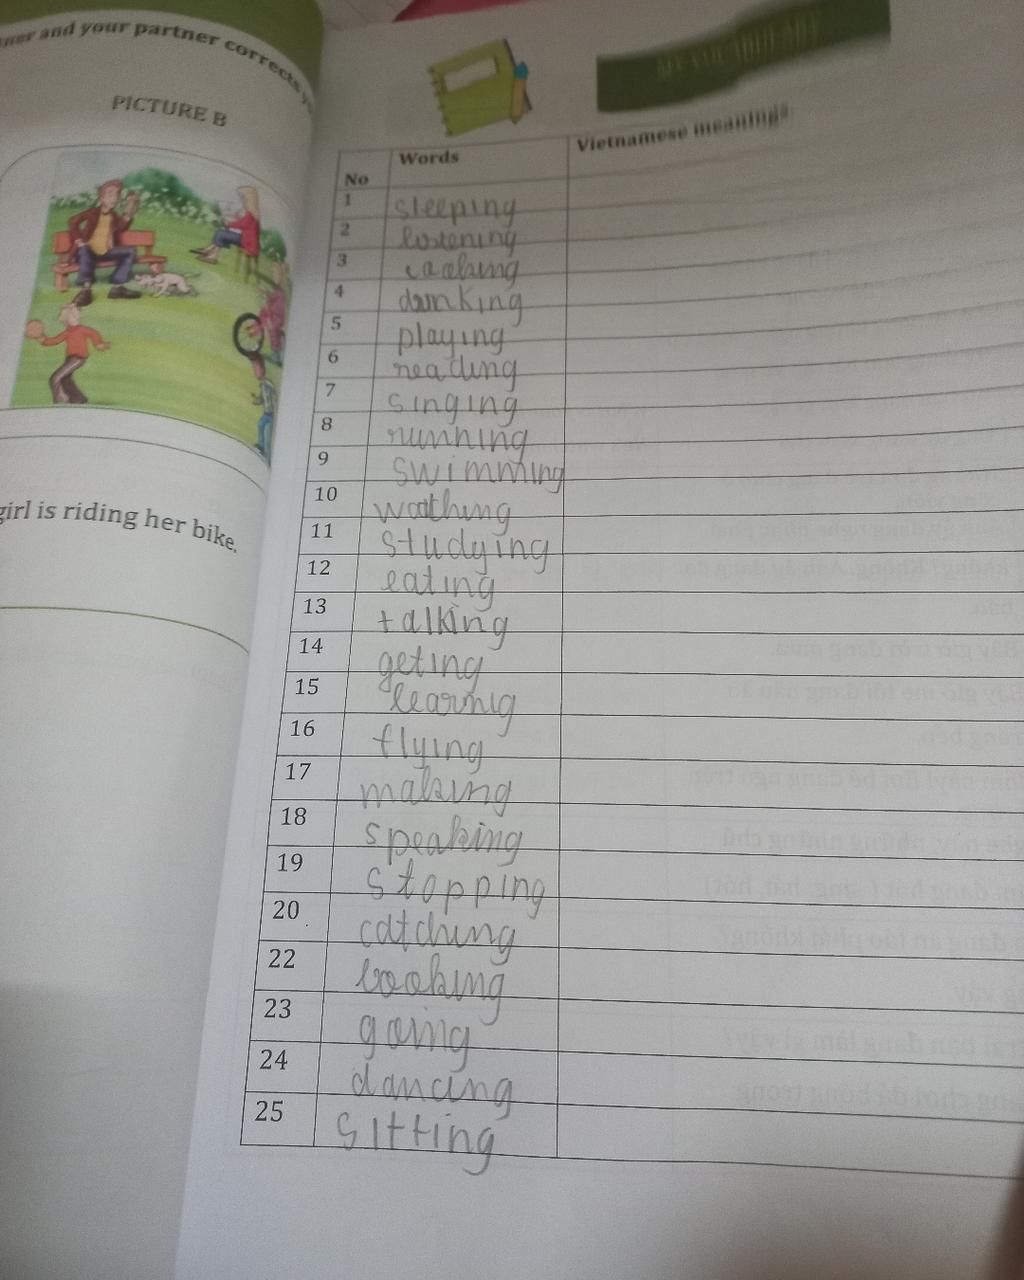 ner and your partner corrects
PICTURE B
girl is riding her bike.
No Words Vietnamese meanings
1 sleeping
2 listening
3 cooking
4 drinking
5 playing
6 reading
7 singing
8 running
9 swimming
10 watching
11 studying
12 eating
13 talking
14 geting
15 learnig
16 flying
17 making
18 speaking
19 stopping
20 catching
22 looking
23 going
24 dancing
25 sitting